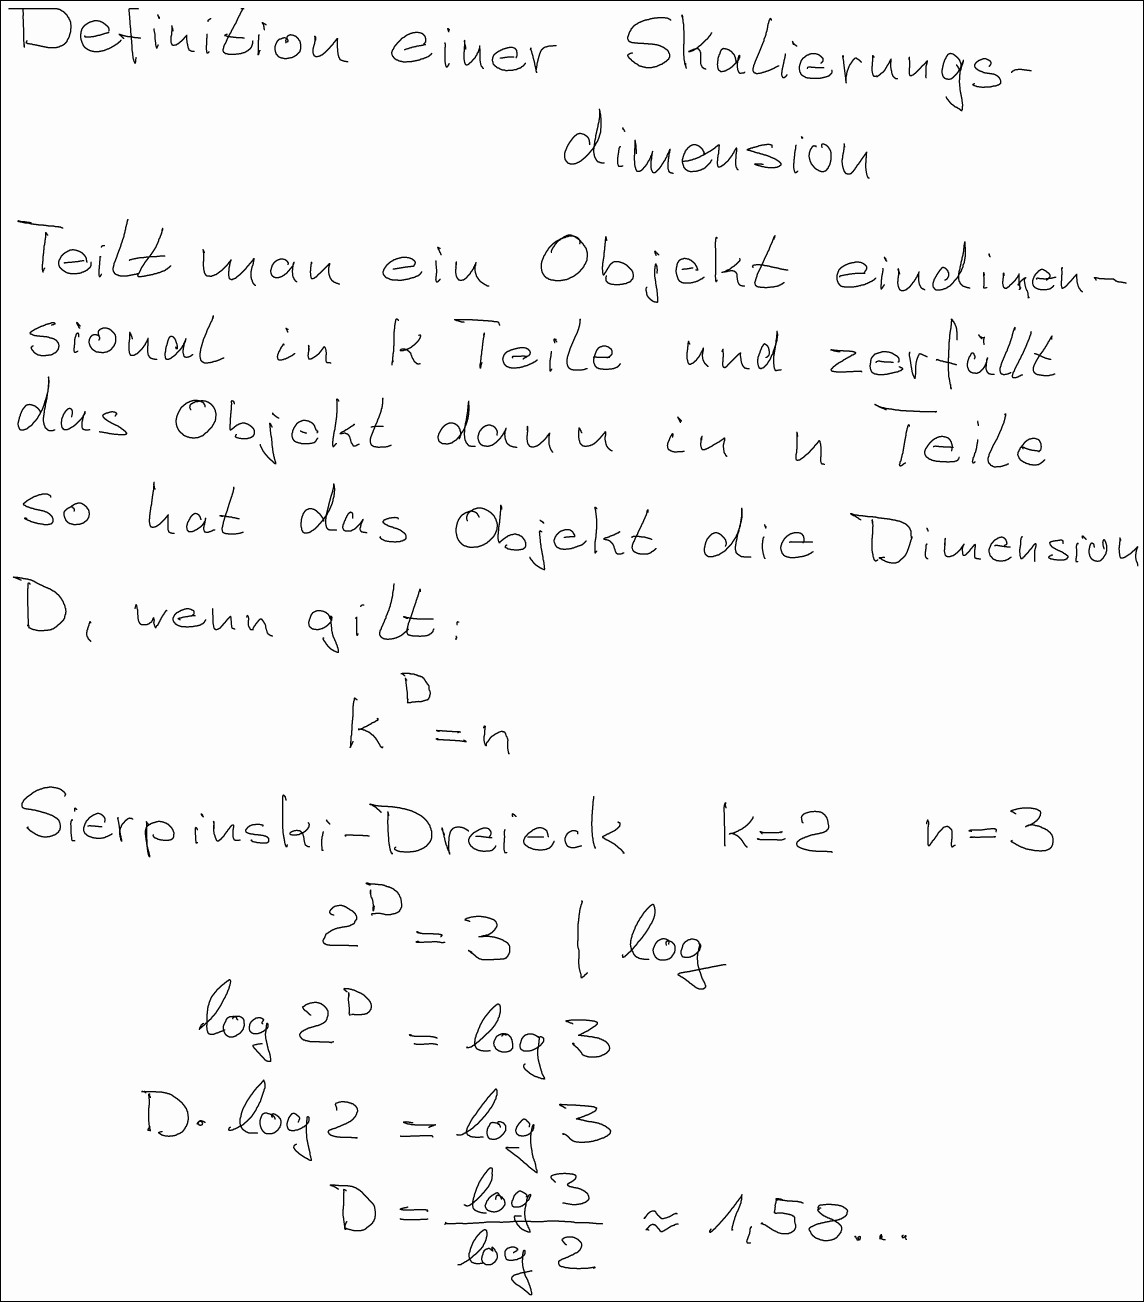 Definition einer Skalierungs-
dimension
Teilt man ein Objekt eindimen-
sional in k Teile und zerfällt
das Objekt dann in n Teile
so hat das Objekt die Dimension
D, wenn gilt:
k^D = n
Sierpinski-Dreieck k=2 n=3
2^D = 3 | log
log 2^D = log 3
D · log 2 = log 3
D = log 3 / log 2 ≈ 1,58...